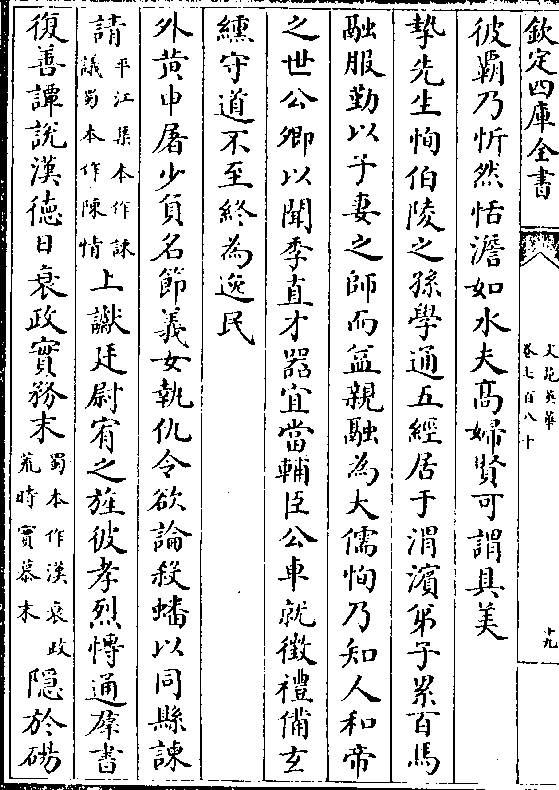 欽定四庫全書
文苑英華
卷七百八十
十九
彼霸乃忻然恬澹如水夫高婦賢可謂具美
摯先生恂伯陵之孫學通五經居于渭濱弟子累百馬
融服勤以子妻之師而益親融為大儒恂乃知人和帝
之世公卿以聞季直才器宜當輔臣公車就徵禮備玄
纁守道不至終為逸民
外黃申屠少負名節義女執仇令欲論殺蟠以同縣諫
請平江集本作誄議蜀本作陳情上讞廷尉宥之旌彼孝烈博通羣書
復善譚說漢徳日衰政實務末蜀本作漢衰政荒時實慕末隠於碭